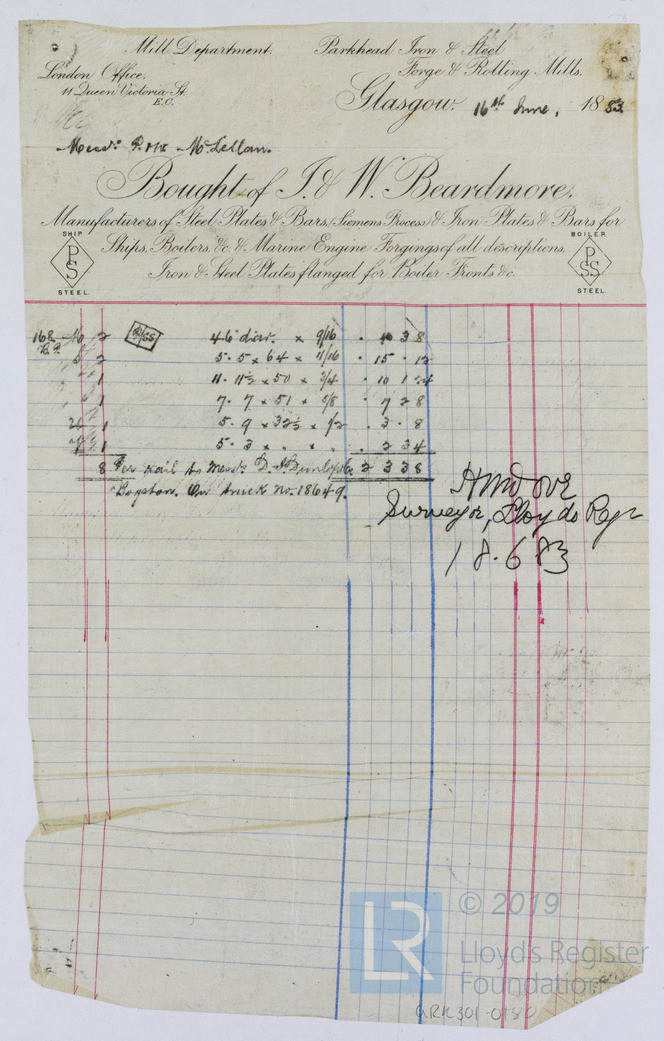 Mill Department. Parkhead Iron & Steel
London Office, Forge & Rolling Mills.
11 Queen Victoria St.
E.C.
Glasgow. 16th June, 1883.
Messrs P. & W. McLellan.
Bought of I. & W. Beardmore,
Manufacturers of Steel Plates & Bars (Siemens Process) & Iron Plates & Bars for
Ships, Boilers, &c. & Marine Engine Forgings of all descriptions.
Iron & Steel Plates flanged for Boiler Fronts &c.
SHIP
PS
STEEL.
BOILER
PSS
STEEL.
168 2 46 diar. × 9/16 38
2 5.5 × 64 × 11/16 . 15 . 12
1 11. 11½ × 50 × 3/4 . 10 1 24
1 7. 7 × 51 × 5/8 . 7 2 8
1 5. 9 × 32½ × 1/2 . 3 . 8
1 5. 3 × " " . 2 3 4
8 Per rail to Messrs D. J. Dunlop & Co 2 3 3 8
Bogston. On truck No. 18649.
Surveyor, Lloyds Regr
18.6.83
© 2019
LR
Lloyd's Register
Foundation
ARK301-0180